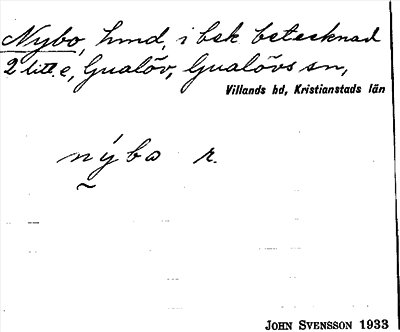 Nybo, hmd, i bsk. betecknad
2 litt. e, Gualöv, Gualövs sn,
Villands hd, Kristianstads län
nýbo r.
JOHN SVENSSON 1933